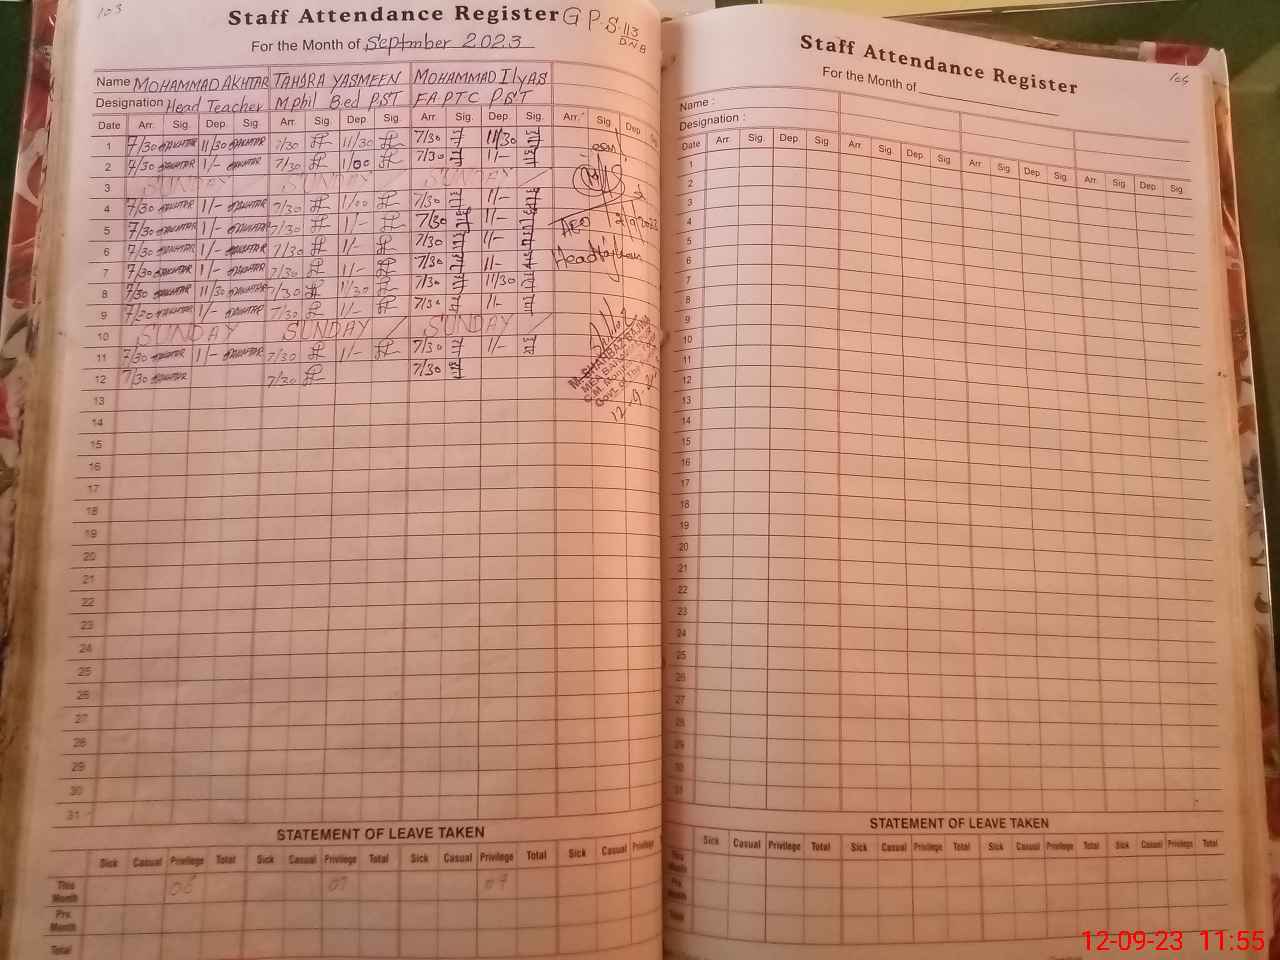 103
Staff Attendance Register G.P.S. 113
DNB
For the Month of September 2023
Name MOHAMMAD AKHTAR TAHIRA YASMEEN MOHAMMAD Ilyas
Designation Head Teacher M.Phil B.ed PST FA PTC PST
Date Arr. Sig. Dep. Sig. Arr. Sig. Dep. Sig. Arr. Sig. Dep. Sig. Arr. Sig. Dep.
1 7/30 AKHTAR 11/30 AKHTAR 7/30 11/30 7/30 11/30
2 7/30 AKHTAR 1/- AKHTAR 7/30 1/00 7/30 1/-
3 SUNDAY SUNDAY SUNDAY
4 7/30 AKHTAR 1/- AKHTAR 7/30 1/00 7/30 1/-
5 7/30 AKHTAR 1/- AKHTAR 7/30 1/- 7/30 1/-
AEO
6 7/30 AKHTAR 1/- AKHTAR 7/30 1/- 7/30 1/-
7 7/30 AKHTAR 1/- AKHTAR 7/30 1/- 7/30 1/-
8 7/30 AKHTAR 11/30 AKHTAR 7/30 11/30 7/30 11/30
9 7/30 AKHTAR 1/- AKHTAR 7/30 1/- 7/30 1/-
10 SUNDAY SUNDAY SUNDAY
11 7/30 AKHTAR 1/- AKHTAR 7/30 1/- 7/30 1/-
12 7/30 AKHTAR 7/30 7/30
13
14
15
16
17
18
19
20
21
22
23
24
25
26
27
28
29
30
31
STATEMENT OF LEAVE TAKEN
Sick Casual Privilege Total Sick Casual Privilege Total Sick Casual Privilege Total Sick Casual Privilege
This Month 07
Prv. Month
Total
104
Staff Attendance Register
For the Month of
Name :
Designation :
Date Arr. Sig. Dep. Sig. Arr. Sig. Dep. Sig. Arr. Sig. Dep. Sig. Arr. Sig. Dep. Sig.
1
2
3
4
5
6
7
8
9
10
11
12
13
14
15
16
17
18
19
20
21
22
23
24
25
26
27
28
29
30
31
STATEMENT OF LEAVE TAKEN
Sick Casual Privilege Total Sick Casual Privilege Total Sick Casual Privilege Total Sick Casual Privilege Total
This Month
Prv. Month
Total
12-09-23 11:55